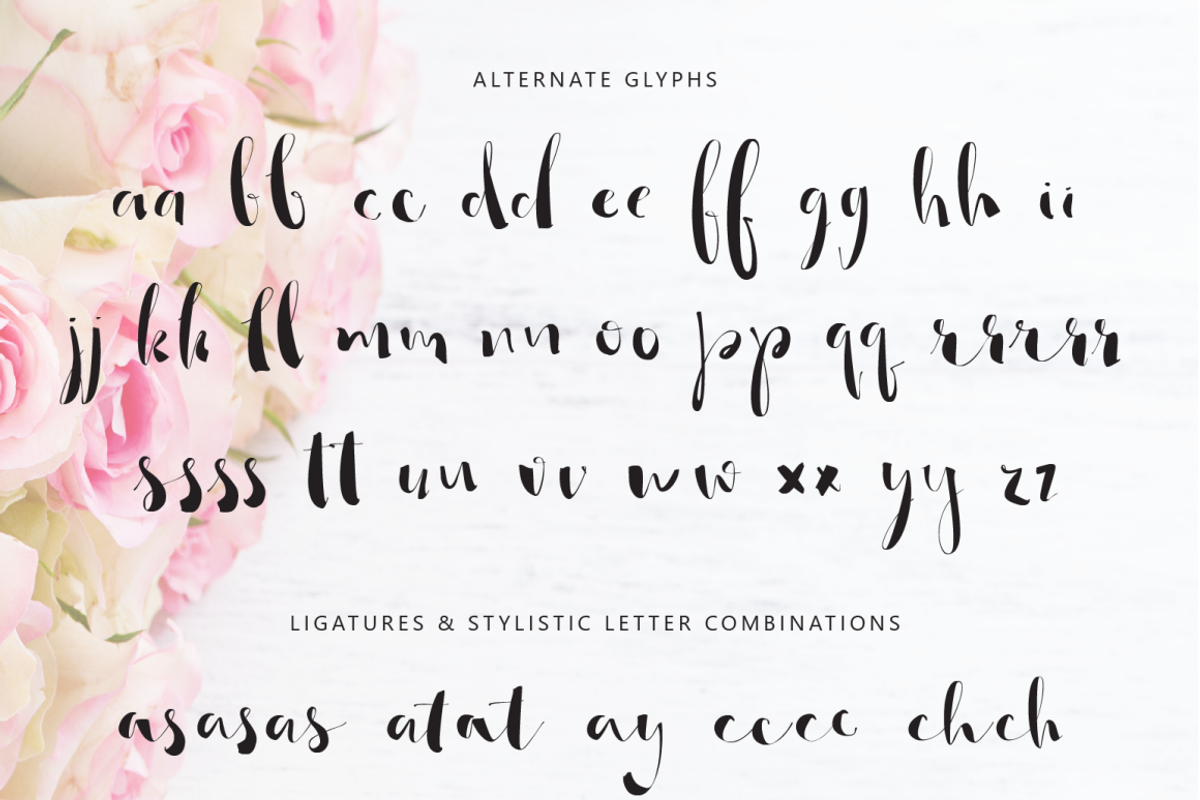 ALTERNATE GLYPHS
aa bb cc dd ee ff gg hh ii
jj kk ll mm nn oo pp qq rrrrr
ssss tt uu vv ww xx yy zz
LIGATURES & STYLISTIC LETTER COMBINATIONS
asasas atat ay cccc chch